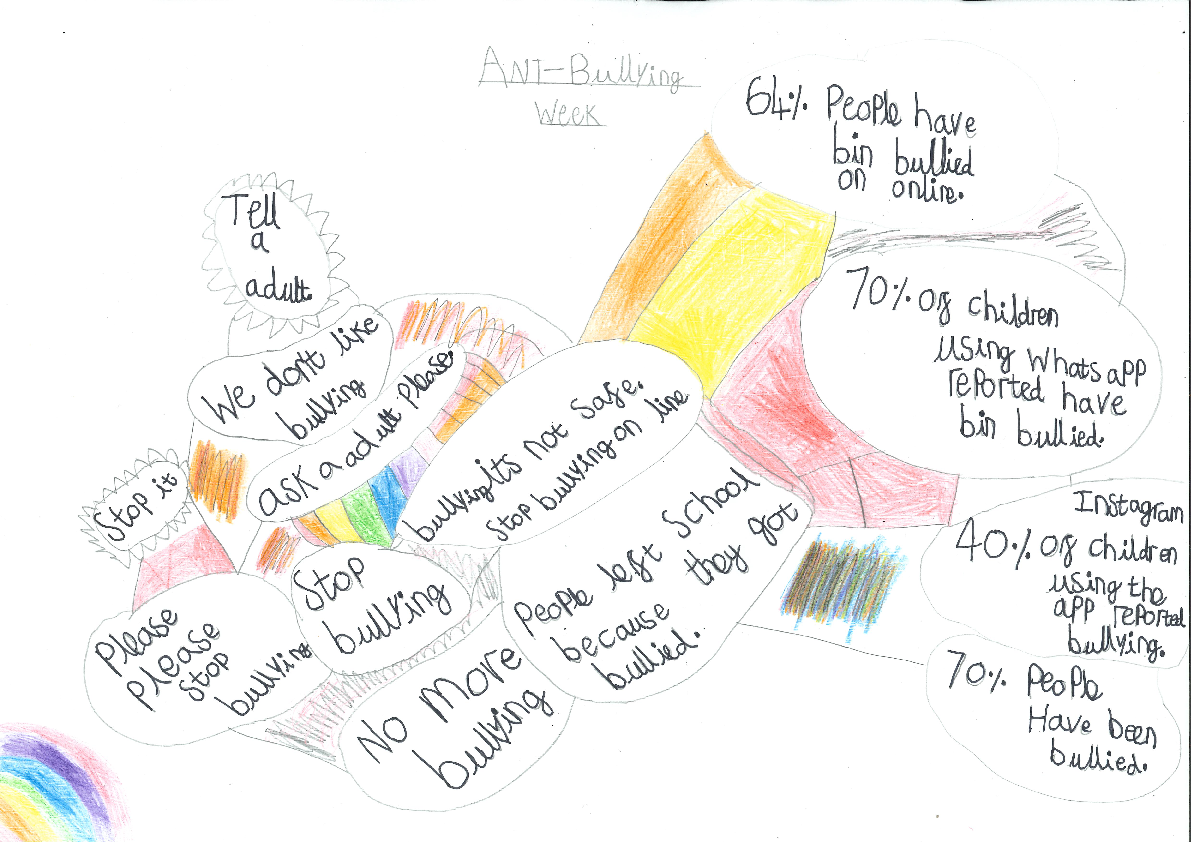 ANTI-Bullying
Week
64% People have
bin bullied
on online.
Tell
a
adult.
70% of children
using Whats app
reported have
bin bullied.
We don't like
bullying
ask a adult please.
bullying Its not safe.
Stop bullying on line
Stop it
People left School
because they got
bullied.
Instagram
40% of children
using the
app reported
bullying.
Stop
bullying
Please
please
stop
bullying
No more
bullying
70% People
Have been
bullied.